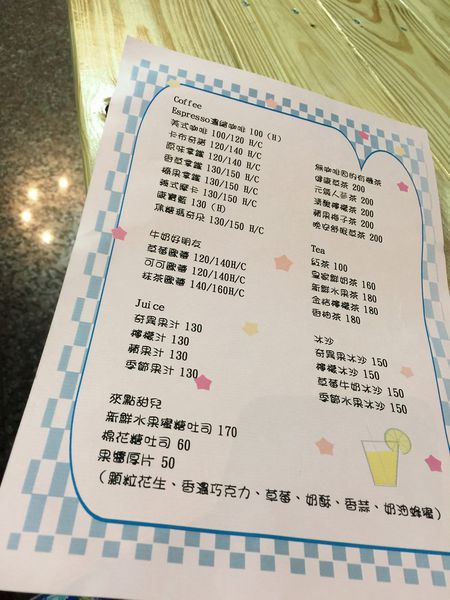 Coffee
Espresso濃縮咖啡 100 (H)
美式咖啡 100/120 H/C
卡布奇諾 120/140 H/C
原味拿鐵 120/140 H/C
香草拿鐵 130/150 H/C
榛果拿鐵 130/150 H/C
義式摩卡 130/150 H/C
康寶藍 130 (H)
焦糖瑪奇朵 130/150 H/C
牛奶好朋友
草莓歐蕾 120/140H/C
可可歐蕾 120/140H/C
抹茶歐蕾 140/160H/C
Juice
奇異果汁 130
檸檬汁 130
蘋果汁 130
季節果汁 130
來點甜兒
新鮮水果蜜糖吐司 170
棉花糖吐司 60
果醬厚片 50
(顆粒花生、香濃巧克力、草莓、奶酥、香蒜、奶油蜂蜜)
無咖啡因的有機茶
健康草茶 200
元氣人蔘茶 200
清酸檸檬茶 200
蘋果梅子茶 200
晚安舒眠草茶 200
Tea
紅茶 100
皇家鮮奶茶 160
新鮮水果茶 180
金桔檸檬茶 180
香柚茶 180
冰沙
奇異果冰沙 150
檸檬冰沙 150
草莓牛奶冰沙 150
季節水果冰沙 150